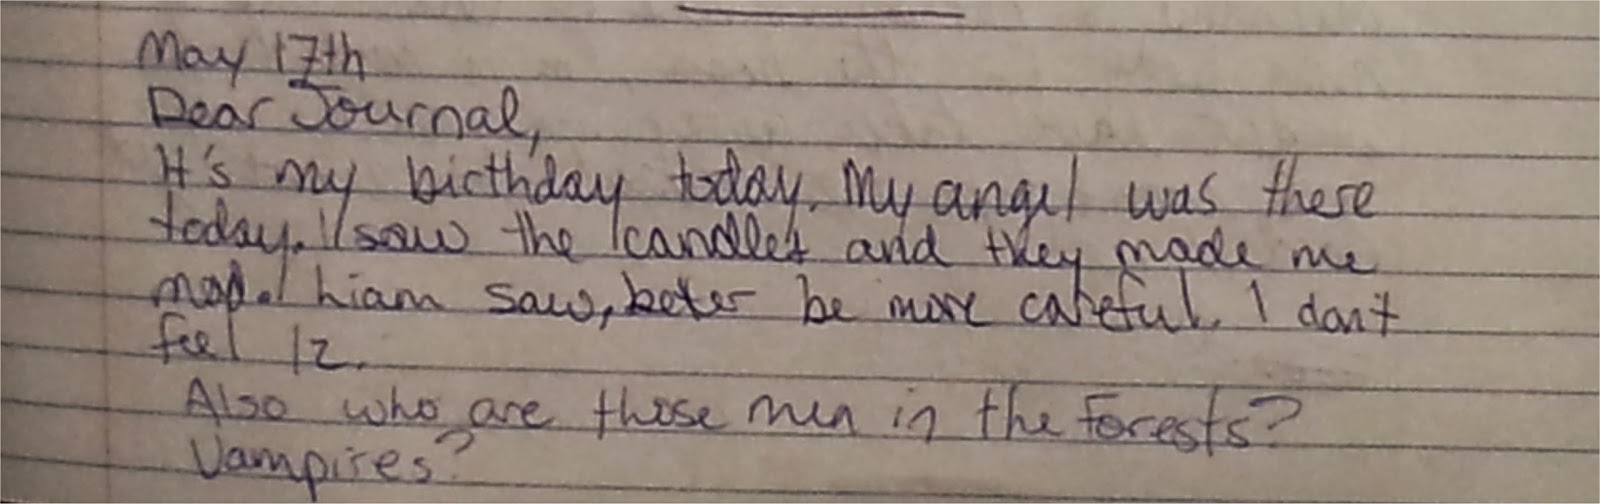 May 17th
Dear Journal,
It's my birthday today. My angel was there
today. I saw the candles and they made me
mad. Liam saw, beter be more careful. I don't
feel 12.
Also who are those men in the Forests?
Vampires?